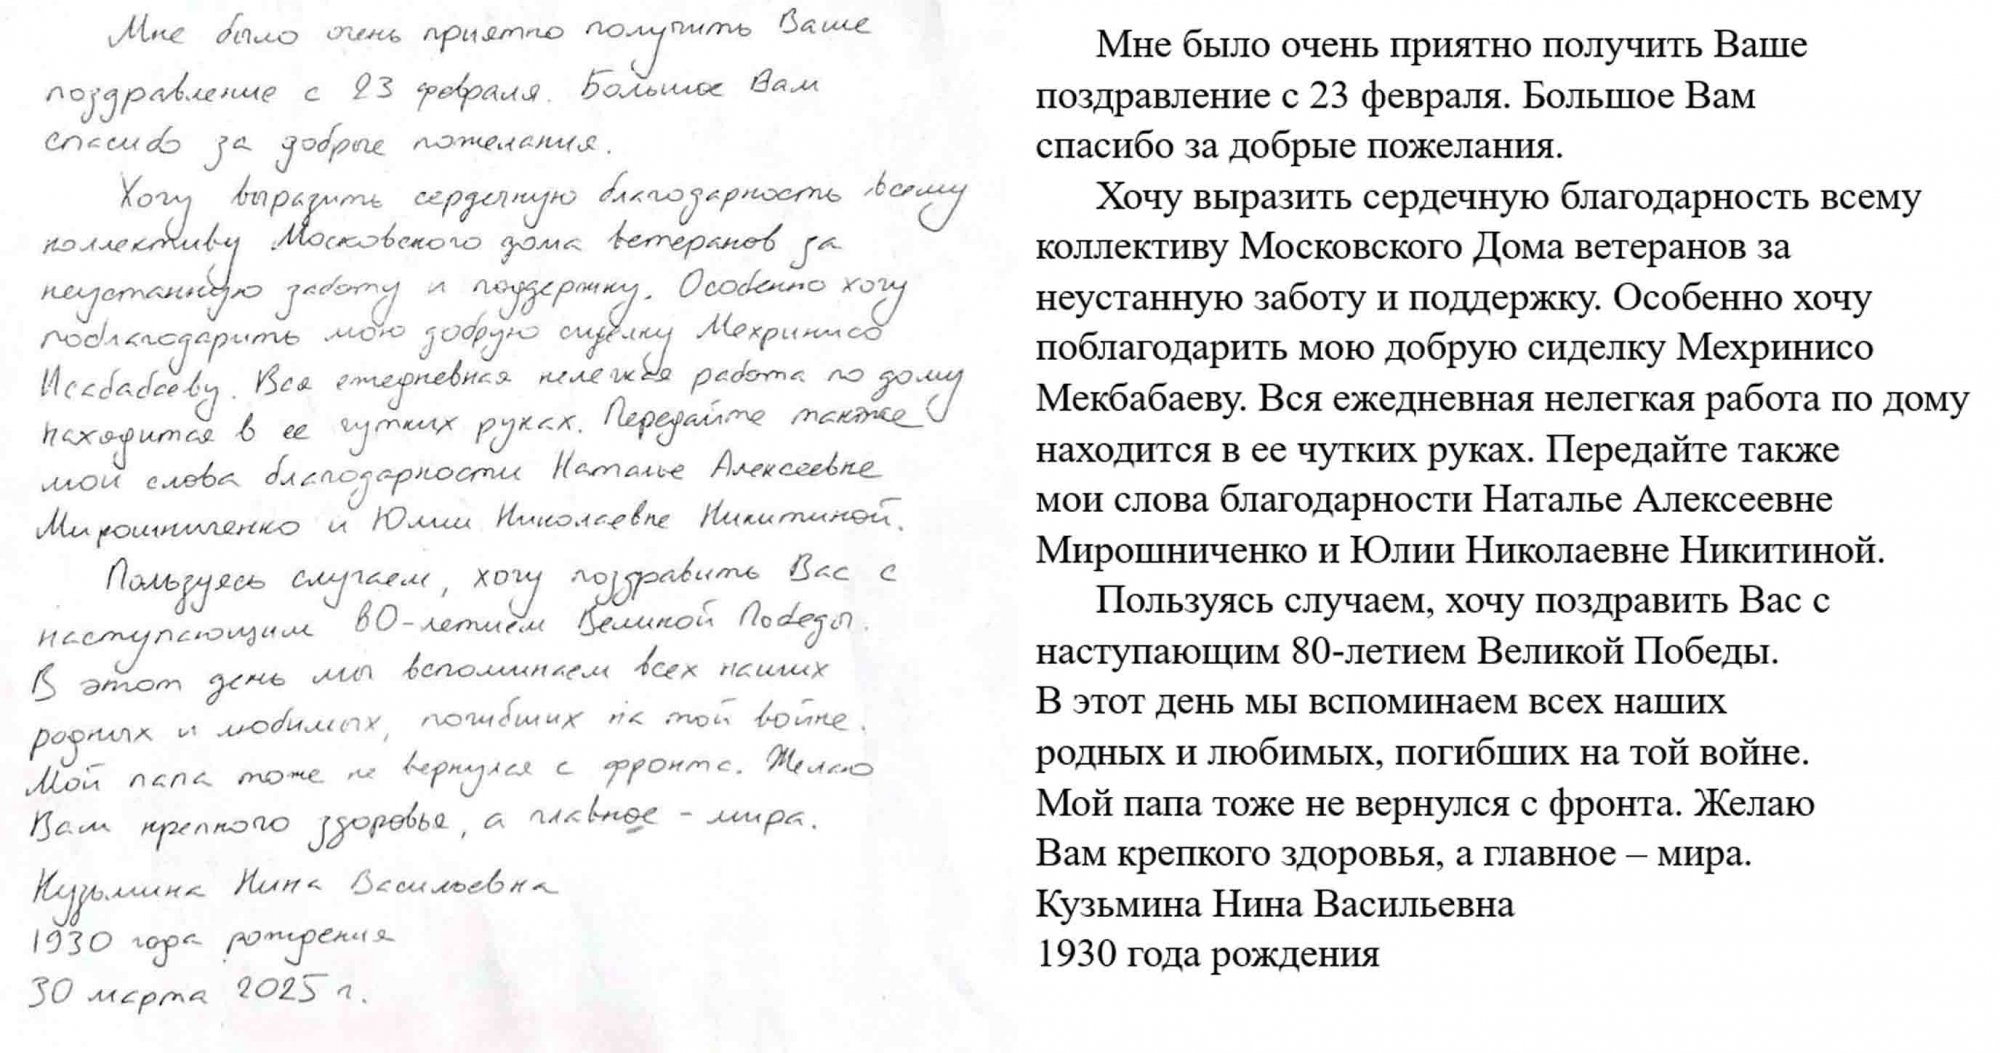 Мне было очень приятно получить Ваше
поздравление с 23 февраля. Большое Вам
спасибо за добрые пожелания.
Хочу выразить сердечную благодарность всему
коллективу Московского дома ветеранов за
неустанную заботу и поддержку. Особенно хочу
поблагодарить мою добрую сиделку Мехринисо
Исабабаеву. Вся ежедневная нелегкая работа по дому
находится в ее чутких руках. Передайте также
мои слова благодарности Наталье Алексеевне
Мирошниченко и Юлии Николаевне Никитиной.
Пользуясь случаем, хочу поздравить Вас с
наступающим 80-летием Великой Победы.
В этот день мы вспоминаем всех наших
родных и любимых, погибших на той войне.
Мой папа тоже не вернулся с фронта. Желаю
Вам крепкого здоровья, а главное - мира.
Кузьмина Нина Васильевна
1930 года рождения
30 марта 2025 г.
Мне было очень приятно получить Ваше
поздравление с 23 февраля. Большое Вам
спасибо за добрые пожелания.
Хочу выразить сердечную благодарность всему
коллективу Московского Дома ветеранов за
неустанную заботу и поддержку. Особенно хочу
поблагодарить мою добрую сиделку Мехринисо
Мекбабаеву. Вся ежедневная нелегкая работа по дому
находится в ее чутких руках. Передайте также
мои слова благодарности Наталье Алексеевне
Мирошниченко и Юлии Николаевне Никитиной.
Пользуясь случаем, хочу поздравить Вас с
наступающим 80-летием Великой Победы.
В этот день мы вспоминаем всех наших
родных и любимых, погибших на той войне.
Мой папа тоже не вернулся с фронта. Желаю
Вам крепкого здоровья, а главное – мира.
Кузьмина Нина Васильевна
1930 года рождения